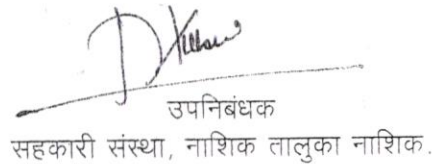 उपनिबंधक
सहकारी संस्था, नाशिक तालुका नाशिक.